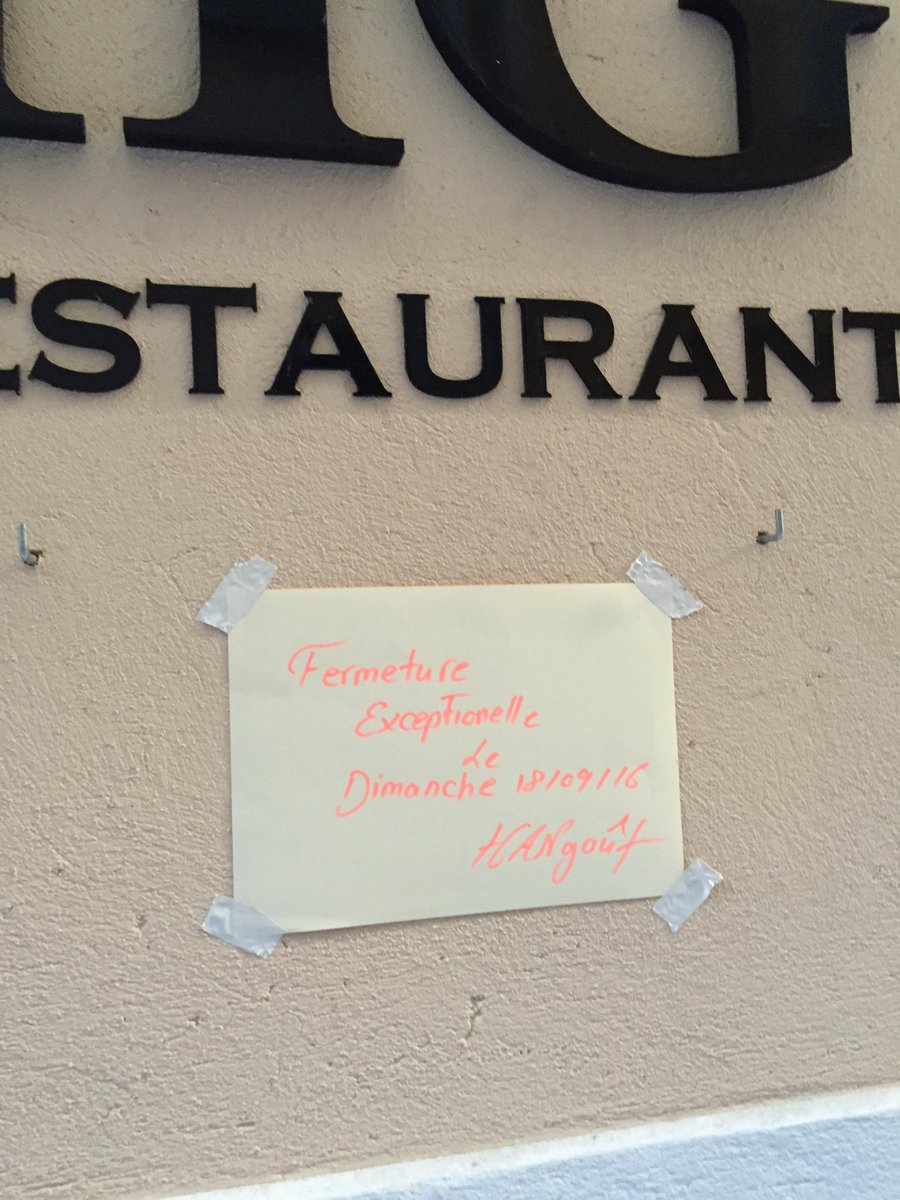 G
ESTAURANT
Fermeture
Exceptionelle
Le
Dimanche 18/09/16
HANgoût